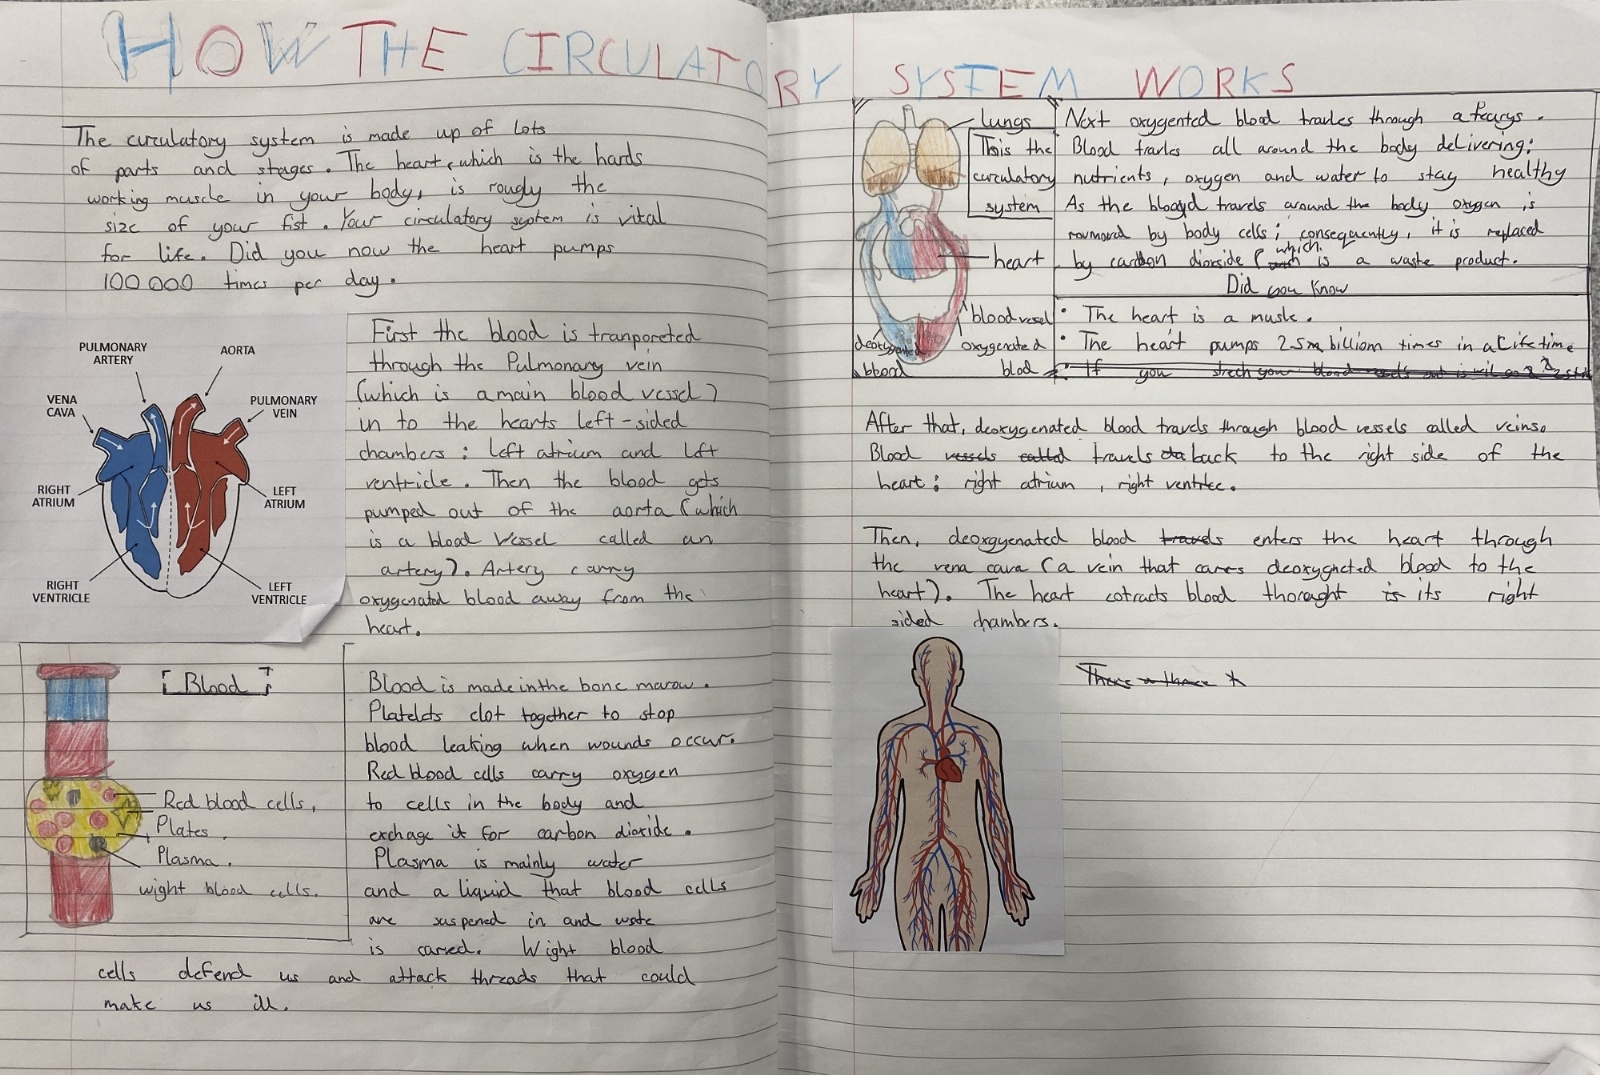 HOW THE CIRCULATORY SYSTEM WORKS
The curculatory system is made up of lots
of parts and stages. The heart, which is the hards
working muscle in your body, is rougly the
size of your fist. Your circulatory system is vital
for life. Did you now the heart pumps
100 000 times per day.
PULMONARY
ARTERY
AORTA
VENA
CAVA
PULMONARY
VEIN
RIGHT
ATRIUM
LEFT
ATRIUM
RIGHT
VENTRICLE
LEFT
VENTRICLE
First the blood is tranporeted
through the Pulmonary vein
(which is a main blood vessel)
in to the hearts left-sided
chambers: left atrium and left
ventricle. Then the blood gets
pumped out of the aorta (which
is a blood Vessel called an
artery). Artery carry
oxygenated blood away from the
heart.
Blood
Red blood cells,
Plates.
Plasma.
wight blood cells.
Blood is made in the bone marow.
Platelets clot together to stop
blood leaking when wounds occur.
Red blood cells carry oxygen
to cells in the body and
exchage it for carbon dioxide.
Plasma is mainly water
and a liquid that blood cells
are suspened in and waste
is caried. Wight blood
cells defend us and attack threads that could
make us ill.
lungs
This the
curculatory
system
heart
blood vesel
deoxygenated
blood
oxygenated
blod
Next oxygented blood travles through
Blood travles all around the body delivering:
nutrients, oxygen and water to stay healthy
As the blood travels around the body oxygen is
roumord by body cells; consequently, it is replaced
by carbon dioxide (which is a waste product.
Did you Know
• The heart is a musle.
• The heart pumps 2.5 billiom times in a Life time
• If you strech your blood
After that, deoxygenated blood travels through blood vessels called veins.
Blood vessels called travels back to the right side of the
heart: right atrium, right ventrlce.
Then, deoxgyenated blood travels enters the heart through
the vena cava (a vein that cares deoxygneted blood to the
heart). The heart cotracts blood thorought is its right
sided chambers.